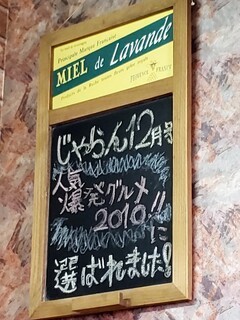 Principale Marque Française
MIEL de Lavande
じゃらん12月号
人気
爆発グルメ
2010!!に
選ばれました!